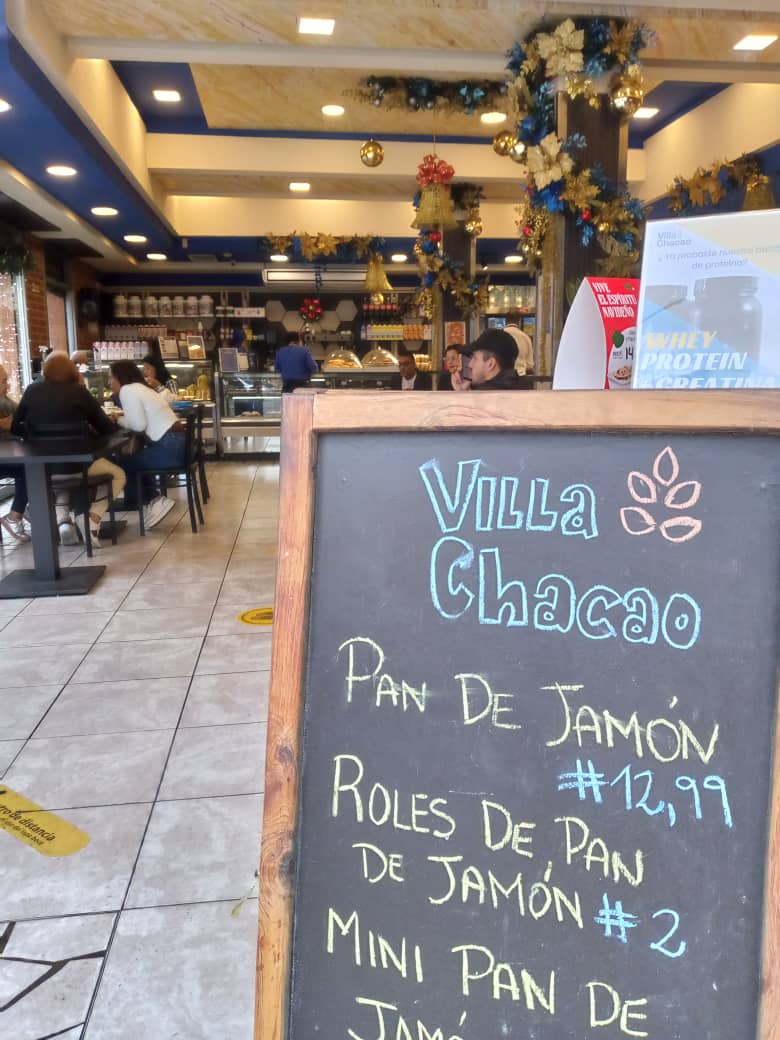 Villa
Chacao
¿Ya probaste nuestro batido
de proteína?
WHEY
PROTEIN
+ CREATINA
VIVE
EL ESPÍRITU
NAVIDEÑO
14
VILLA
Chacao
PAN DE JAMÓN
#12,99
ROLES DE PAN
DE JAMÓN #2
MINI PAN DE
JAMÓ
de distancia